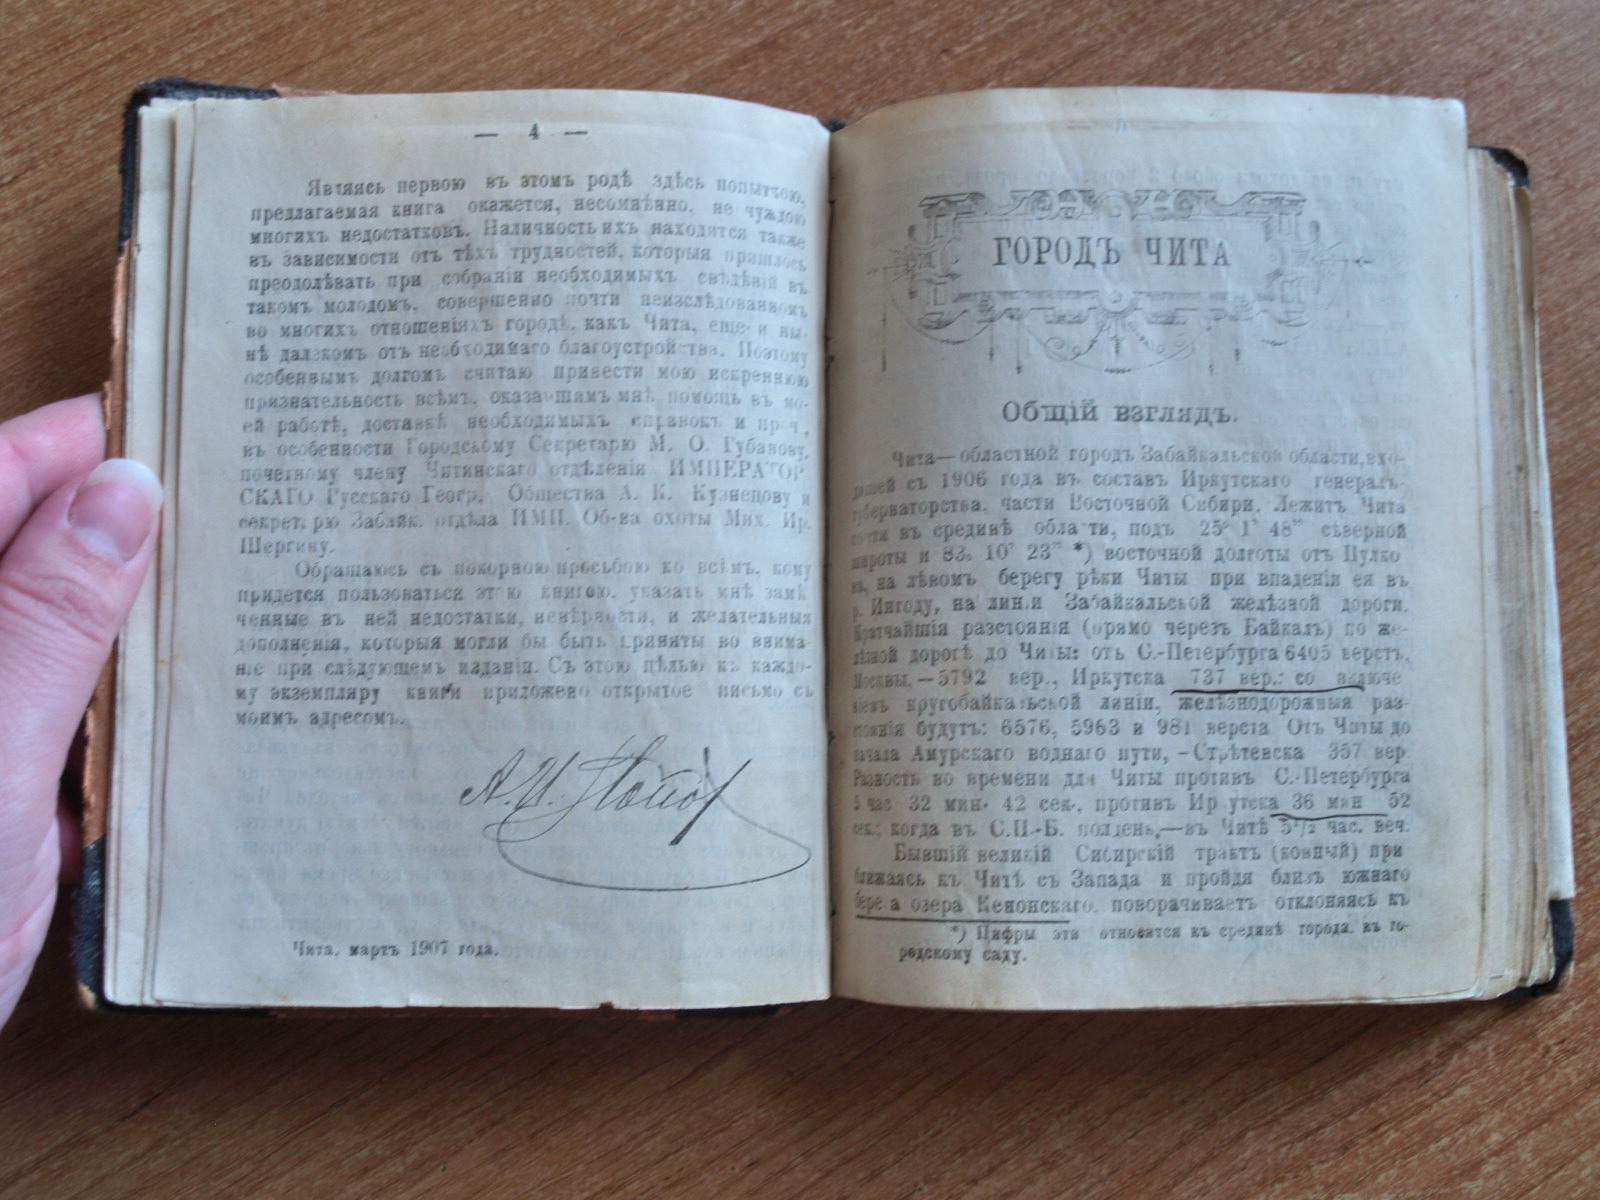 — 4 —
Являясь первою въ этомъ родѣ здѣсь попыткою,
предлагаемая книга окажется, несомнѣнно, не чуждою
многихъ недостатковъ. Наличность ихъ находится также
въ зависимости отъ тѣхъ трудностей, которыя пришлось
преодолѣвать при собраніи необходимыхъ свѣдѣній въ
такомъ молодомъ, совершенно почти неизслѣдованномъ
во многихъ отношеніяхъ городѣ, какъ Чита, еще и ны-
нѣ далекомъ отъ необходимаго благоустройства. Поэтому
особеннымъ долгомъ считаю принести мою искреннюю
признательность всѣмъ, оказавшимъ мнѣ помощь въ мо-
ей работѣ, доставкѣ необходимыхъ справокъ и проч.,
въ особенности Городскому Секретарю М. О. Губанову,
почетному члену Читинскаго отдѣленія ИМПЕРАТОР-
СКАГО Русскаго Геогр. Общества А. К. Кузнецову и
секретарю Забайк. отдѣла ИМП. Об-ва охоты Мих. Ир.
Шергину.
Обращаюсь съ покорною просьбою ко всѣмъ, кому
придется пользоваться этою книгою, указать мнѣ замѣ
ченные въ ней недостатки, невѣрности, и желательныя
дополненія, которыя могли бы быть приняты во внима-
ніе при слѣдующемъ изданіи. Съ этою цѣлью къ каждо-
му экземпляру книги приложено открытое письмо съ
моимъ адресомъ.
А. И. Попов
Чита, мартъ 1907 года.
ГОРОДЪ ЧИТА
Общій взглядъ.
Чита—областной городъ Забайкальской области, вхо-
дящей съ 1906 года въ составъ Иркутскаго генералъ-
губернаторства, части Восточной Сибири. Лежитъ Чита
почти въ срединѣ области, подъ 25° 1' 48" сѣверной
широты и 83° 10' 23" *) восточной долготы отъ Пулко
ва, на лѣвомъ берегу рѣки Читы при впаденіи ея въ
р. Ингоду, на линіи Забайкальской желѣзной дороги.
Кратчайшія разстоянія (прямо черезъ Байкалъ) по же-
лѣзной дорогѣ до Читы: отъ С.-Петербурга 6405 верстъ,
Москвы.—5792 вер., Иркутска 737 вер.: со включе
ніемъ кругобайкальской линіи, желѣзнодорожныя раз-
стоянія будутъ: 6576, 5963 и 981 верста. Отъ Читы до
начала Амурскаго воднаго пути,—Срѣтенска 357 вер
Разность во времени для Читы противъ С.-Петербурга
5 час 32 мин. 42 сек., противъ Иркутска 36 мин 52
сек.; когда въ С.П.-Б. полдень,—въ Читѣ 5½ час. веч.
Бывшій великій Сибирскій трактъ (конный) при
ближаясь къ Читѣ съ Запада и пройдя близъ южнаго
берега озера Кенонскаго, поворачиваетъ отклоняясь къ
*) Цифры эти относятся къ срединѣ города, къ го-
родскому саду.